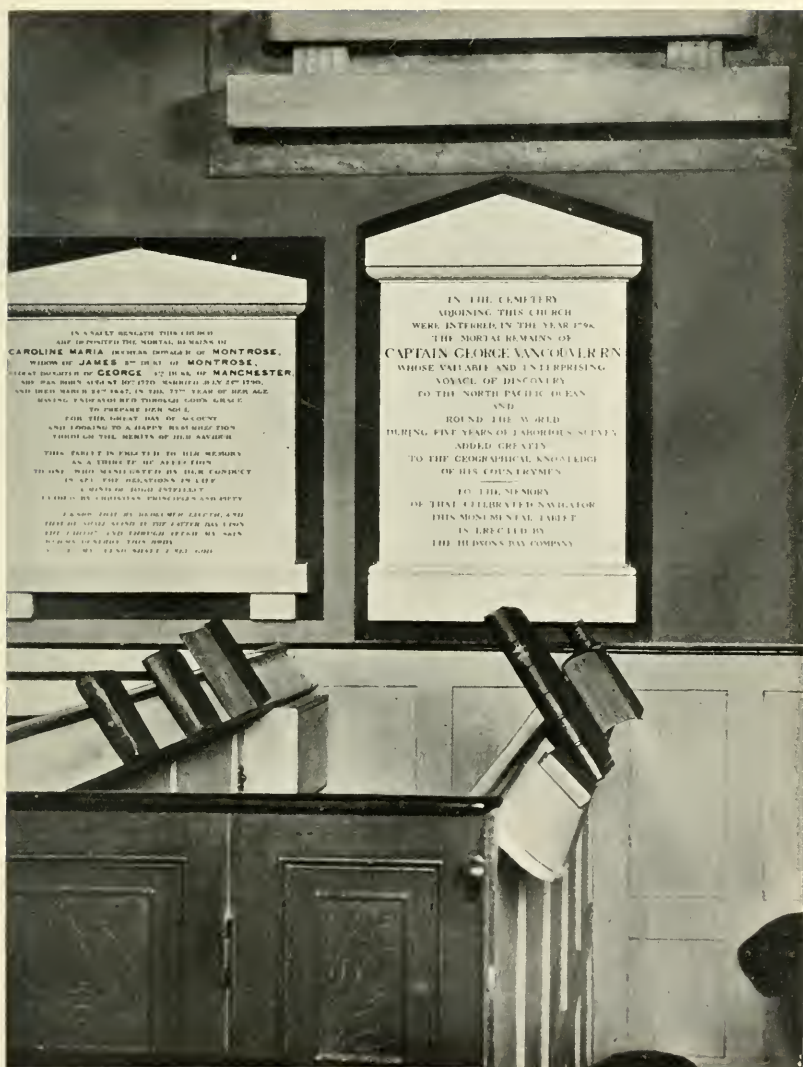 IN A VAULT BENEATH THIS CHURCH
ARE DEPOSITED THE MORTAL REMAINS OF
CAROLINE MARIA DUCHESS DOWAGER OF MONTROSE,
WIDOW OF JAMES 3RD DUKE OF MONTROSE,
ELDEST DAUGHTER OF GEORGE 4TH DUKE OF MANCHESTER,
SHE WAS BORN AUGUST 10TH 1770 MARRIED JULY 24TH 1790,
AND DIED MARCH 24TH 1847, IN THE 77TH YEAR OF HER AGE
HAVING ENDEAVOURED THROUGH GOD'S GRACE
TO PREPARE HER SOUL
FOR THE GREAT DAY OF ACCOUNT
AND LOOKING TO A HAPPY RESURRECTION
THROUGH THE MERITS OF HER SAVIOUR
THIS TABLET IS ERECTED TO HER MEMORY
AS A TRIBUTE OF AFFECTION
TO ONE WHO MANIFESTED BY HER CONDUCT
IN ALL THE RELATIONS IN LIFE
A MIND OF HIGH INTELLECT
BY CHRISTIAN PRINCIPLES AND PIETY
I KNOW THAT MY REDEEMER LIVETH, AND
THAT HE SHALL STAND AT THE LATTER DAY UPON
THE EARTH AND THOUGH AFTER MY SKIN
WORMS DESTROY THIS BODY
MY FLESH SHALL I SEE GOD
IN THE CEMETERY
ADJOINING THIS CHURCH
WERE INTERRED, IN THE YEAR 1798,
THE MORTAL REMAINS OF
CAPTAIN GEORGE VANCOUVER R N
WHOSE VALUABLE AND ENTERPRISING
VOYAGE OF DISCOVERY
TO THE NORTH PACIFIC OCEAN
AND
ROUND THE WORLD
DURING FIVE YEARS OF LABORIOUS SURVEY
ADDED GREATLY
TO THE GEOGRAPHICAL KNOWLEDGE
OF HIS COUNTRYMEN
TO THE MEMORY
OF THAT CELEBRATED NAVIGATOR
THIS MONUMENTAL TABLET
IS ERECTED BY
THE HUDSONS BAY COMPANY